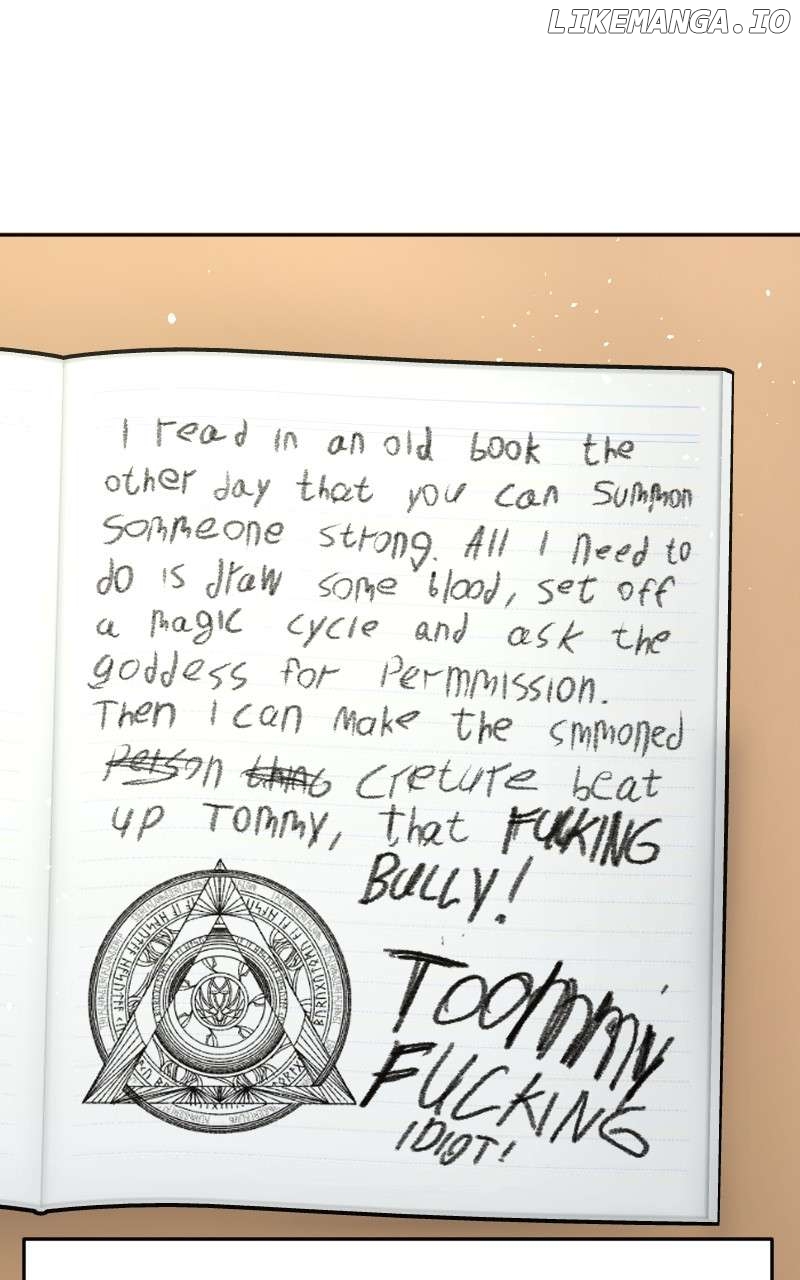 LIKEMANGA.IO
I read in an old book the
other day that you can summon
sommeone strong. All I need to
do is draw some blood, set off
a magic cycle and ask the
goddess for permmission.
Then I can make the smmoned
person thing creture beat
up Tommy, that FUCKING
BULLY!
TOOMMMY
FUCKING
IDIOT!